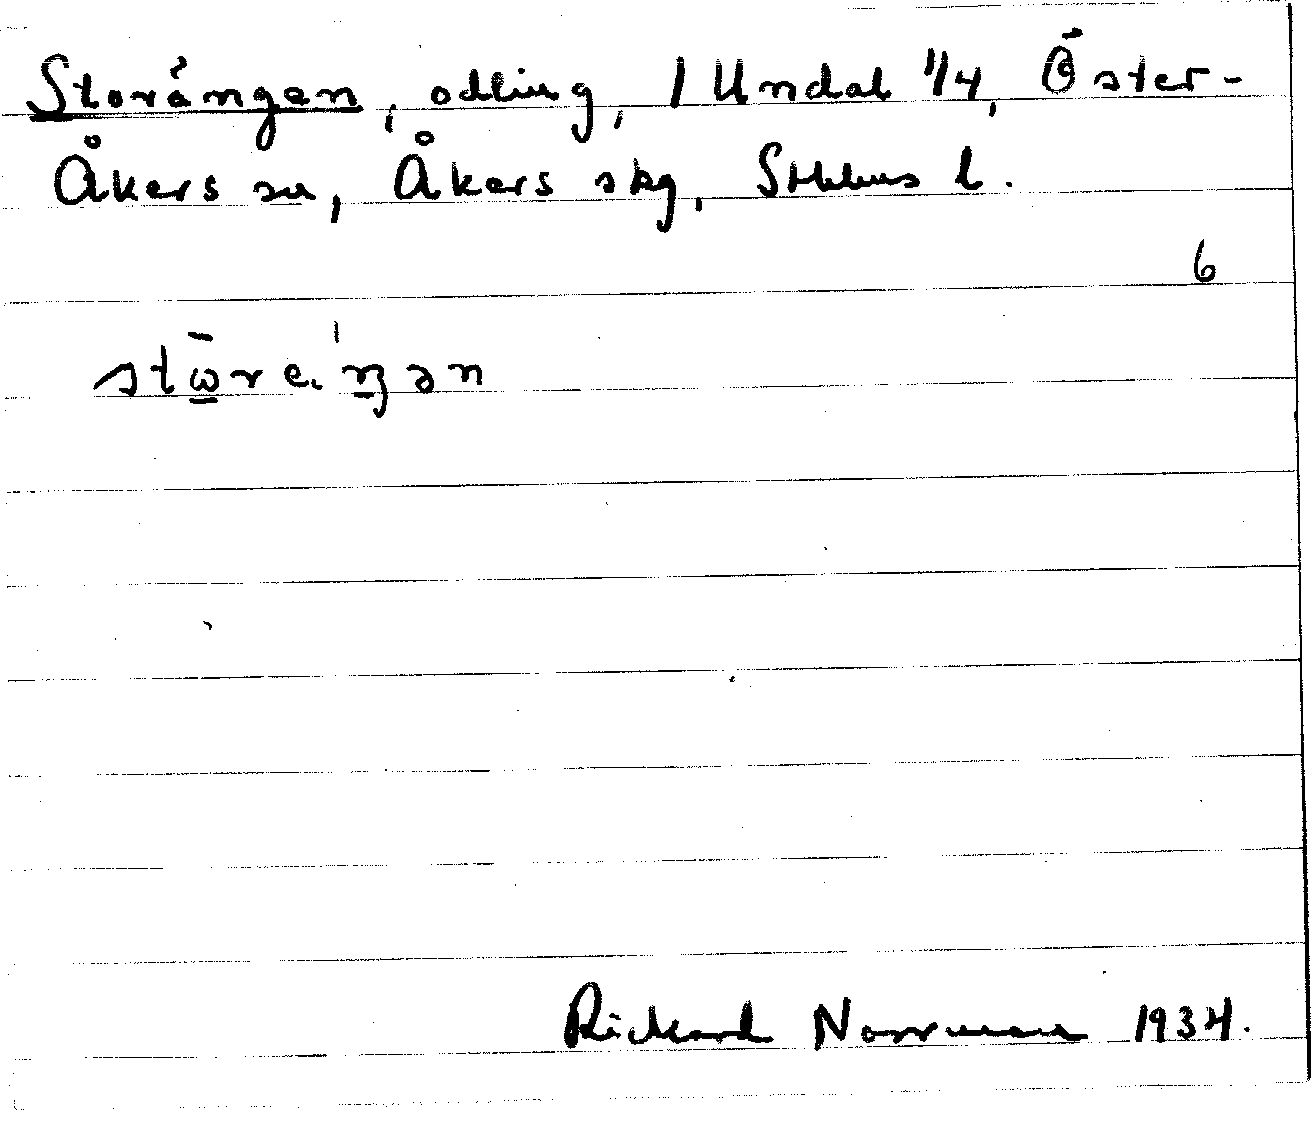 Storängen, odling, / Undal 1/4, Öster-
Åkers sn, Åkers skg, Sthlms l.
6
Rickard Norrman 1934.